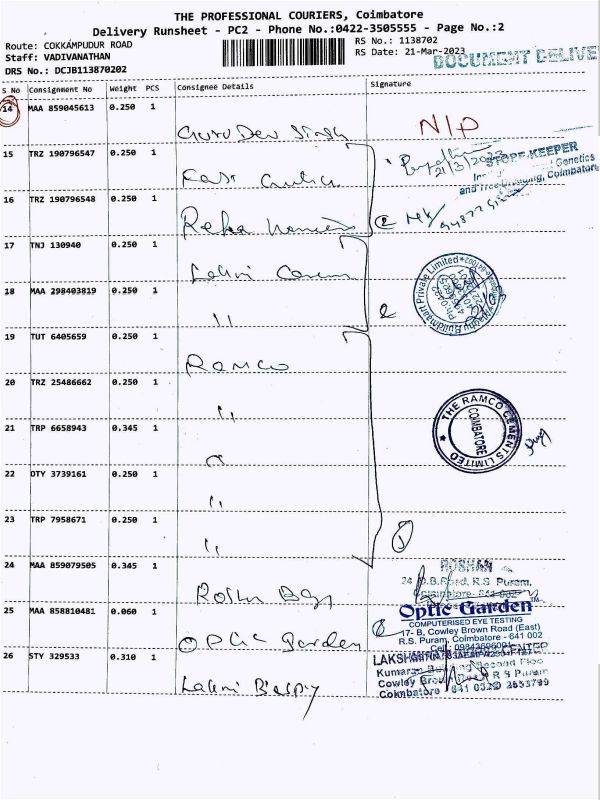 THE PROFESSIONAL COURIERS, Coimbatore
Delivery Runsheet - PC2 - Phone No.:0422-3505555 - Page No.:2
Route: COKKAMPUDUR ROAD
RS No.: 1138702
Staff: VADIVANATHAN
RS Date: 21-Mar-2023
DOCUMENT DELIVE
DRS No.: DCJB113870202
S No Consignment No Weight PCS Consignee Details Signature
14 MAA 859045613 0.250 1
Guru Dev Singh
N/D
15 TRZ 190796547 0.250 1
21/3/2023
STORE KEEPER
Genetics
and Tree Breeding, Coimbatore
16 TRZ 190796548 0.250 1
17 TNJ 130940 0.250 1
Lakmi
18 MAA 298403819 0.250 1
"
Buildmaart Private Limited
19 TUT 6405659 0.250 1
Ramco
20 TRZ 25486662 0.250 1
"
21 TRP 6658943 0.345 1
"
THE RAMCO CEMENTS LIMITED
COIMBATORE
22 OTY 3739161 0.250 1
"
23 TRP 7958671 0.250 1
"
24 MAA 859079505 0.345 1
ROSHAN
24 D.B.Road, R.S. Puram,
25 MAA 858810481 0.060 1
Optic Garden
Optic Garden™
COMPUTERISED EYE TESTING
17- B, Cowley Brown Road (East)
R.S. Puram, Coimbatore - 641 002
26 STY 329533 0.310 1
Lakmi
LAKSHMI
CENTER
Kumaran Building Second Floo
Cowley Brown Road R S Puram
Coimbatore 641 002